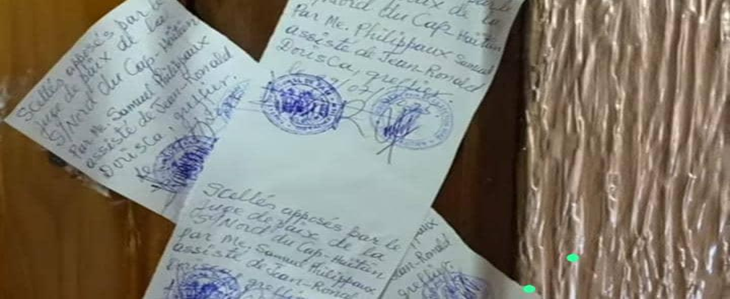 Scellés apposés par le
Juge de Paix de la
S/Nord du Cap-Haïtien
Par Me. Samuel Philippaux
assisté de Jean-Ronald
Dorisca, greffier.
de la
S/Nord du Cap-Haïtien
Par Me. Philippaux Samuel
assisté de Jean-Ronald
Dorisca, greffier.
Scellés apposés par le
Juge de Paix de la
S/Nord du Cap-Haïtien
par Me. Samuel Philippaux
assisté de Jean-Ronald
greffier
Jean-Ronald
greffier